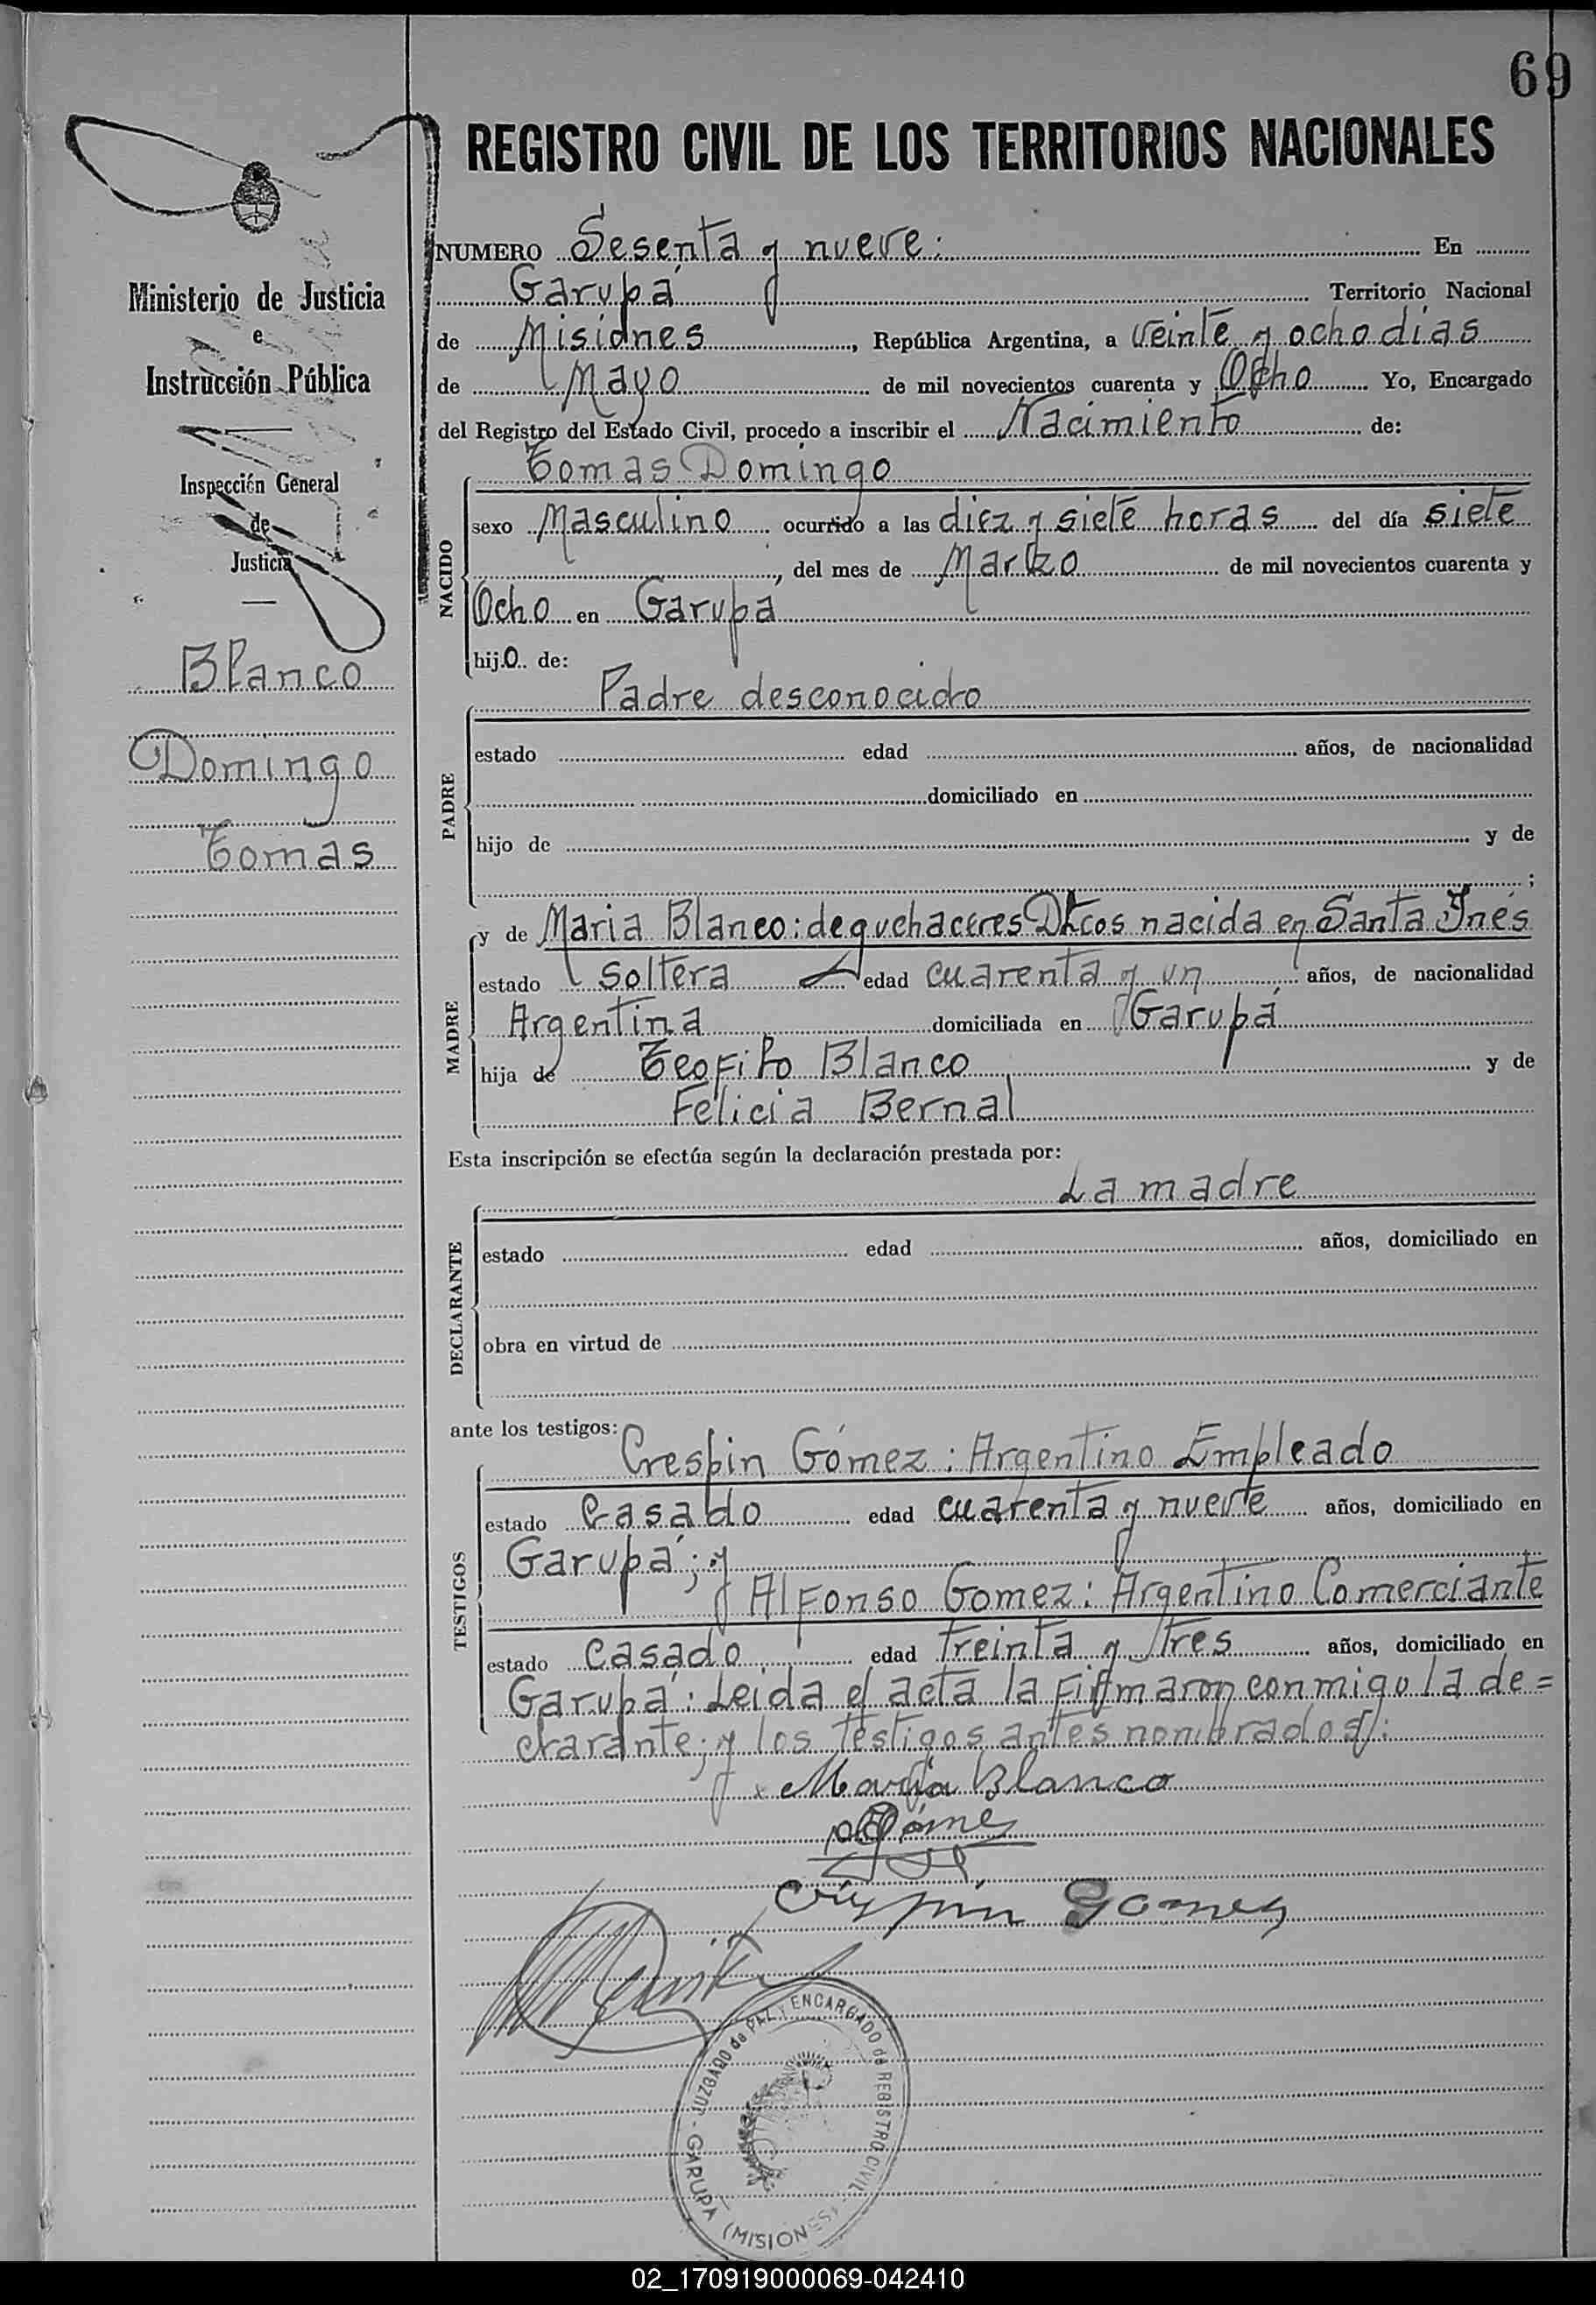 69
REGISTRO CIVIL DE LOS TERRITORIOS NACIONALES
Ministerio de Justicia
e
Instrucción Pública
Inspección General
de
Justicia
Blanco
Domingo
Tomas
NUMERO Sesenta y nueve: En
Garupá Territorio Nacional
de Misiones, República Argentina, a veinte y ocho dias
de Mayo de mil novecientos cuarenta y Ocho Yo, Encargado
del Registro del Estado Civil, procedo a inscribir el Nacimiento de:
Tomas Domingo
NACIDO
sexo Masculino ocurrido a las diez y siete horas del día siete
, del mes de Marzo de mil novecientos cuarenta y
Ocho en Garupá
hijo de:
Padre desconocido
PADRE
estado edad años, de nacionalidad
domiciliado en
hijo de y de
;
MADRE
y de Maria Blanco: de quehaceres Dtcos nacida en Santa Ynés
estado Soltera edad cuarenta y un años, de nacionalidad
Argentina domiciliada en Garupá
hija de Teofilo Blanco y de
Felicia Bernal
Esta inscripción se efectúa según la declaración prestada por:
La madre
DECLARANTE
estado edad años, domiciliado en
obra en virtud de
ante los testigos:
Crespin Gómez: Argentino Empleado
TESTIGOS
estado Casado edad cuarenta y nueve años, domiciliado en
Garupá; y
Alfonso Gomez: Argentino Comerciante
estado Casado edad treinta y tres años, domiciliado en
Garupá: Leida el acta la firmaron conmigo la de=
clarante; y los testigos antes nombrados:
Maria Blanco
Crispin Gomez
GARUPÁ (MISIONES) - JUZGADO de PAZ y ENCARGADO de REGISTRO CIVIL
02_170919000069-042410